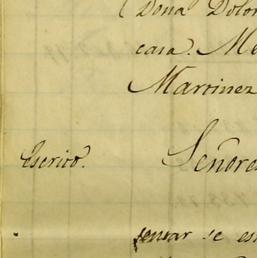 (Dona Dolor
casa. Me
Martinez
Escrito. Señores
sentar se es